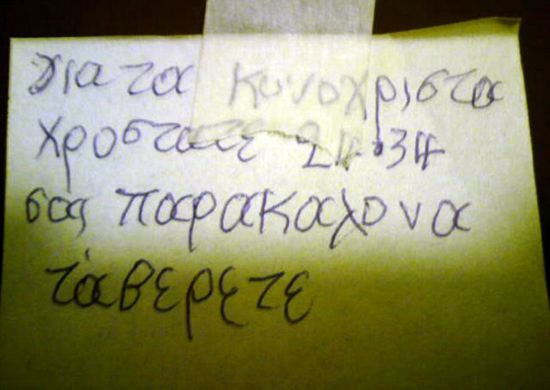 για τα κυνοχριστα
χροστατε 24.34
σας παρακαλο να
τα βερετε